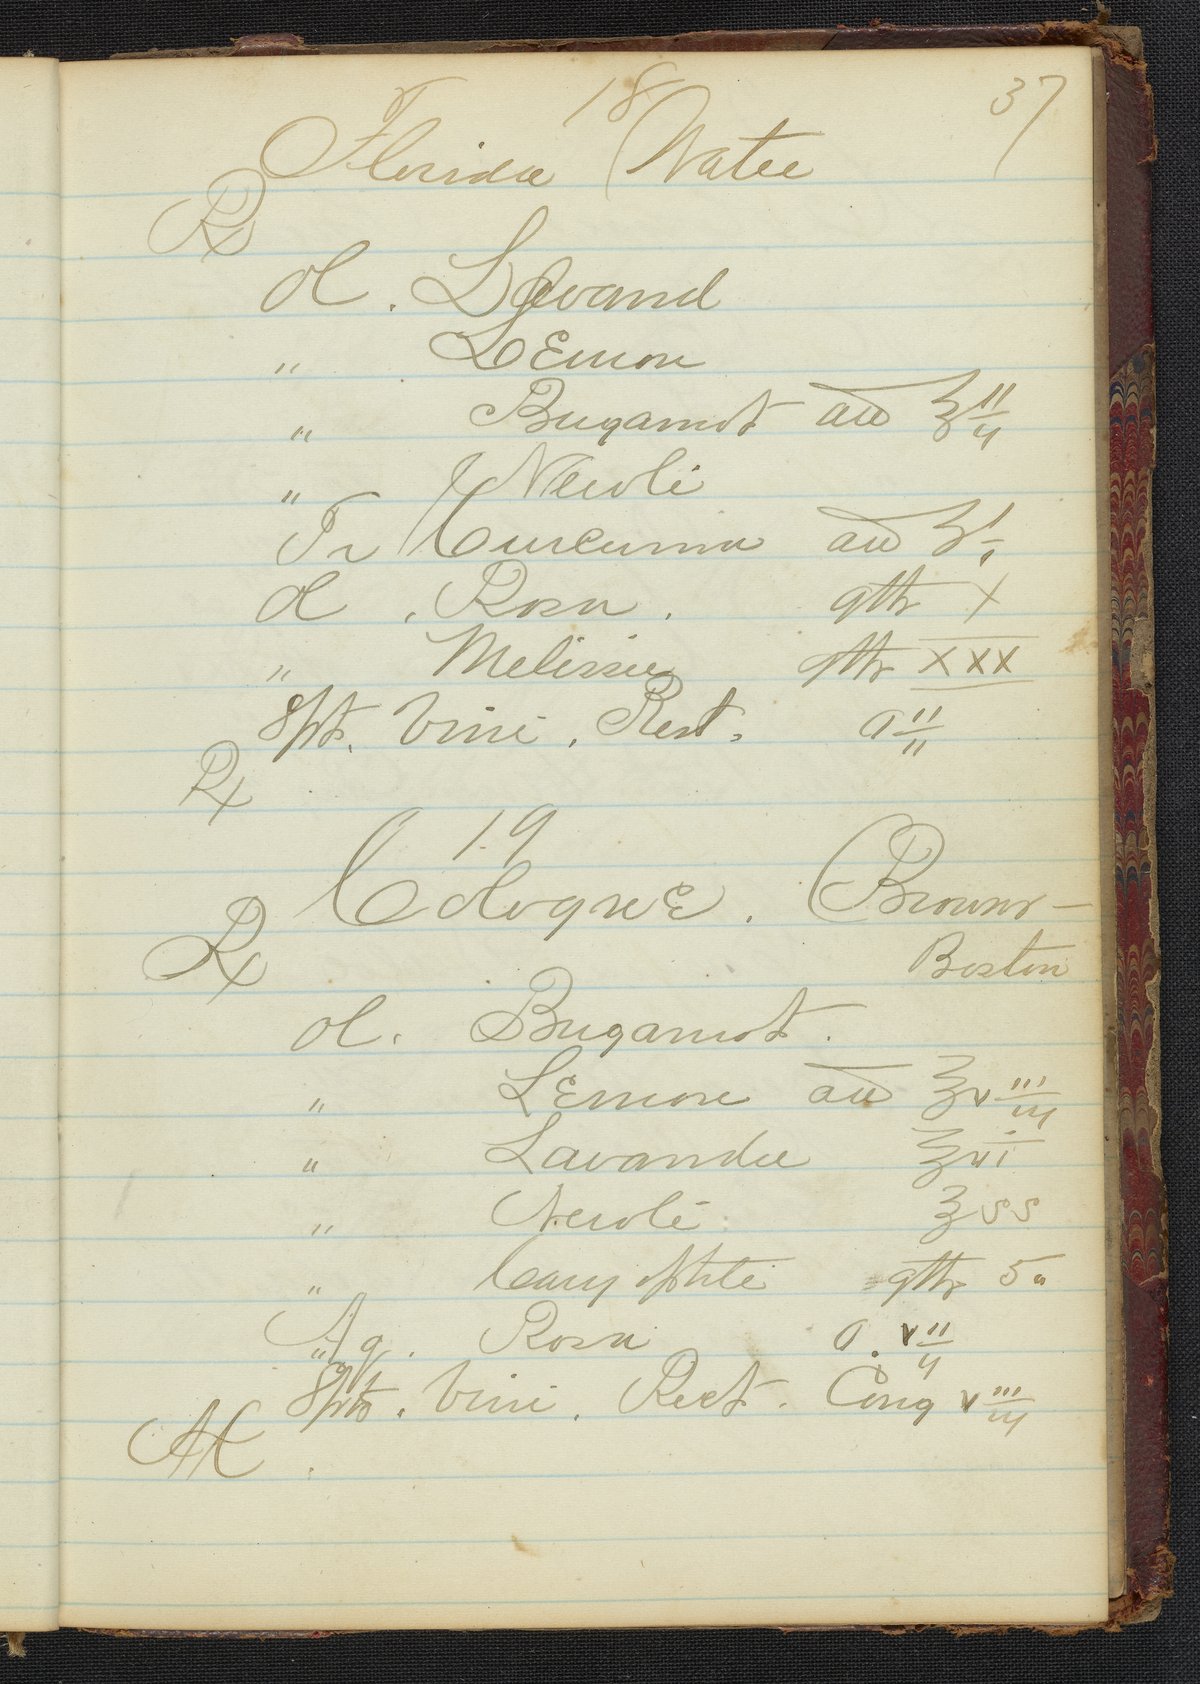 37
18
Florida Water
℞
Ol. Lavand
" Lemon
" Burgamot aa ʒ ii
" Neroli
Tr Curcuma aa ʒ i
Ol. Rosa. gtts X
" Melissa gtts XXX
Spt. Vini. Rect. O ii
℞
19
Cologne. (Browns -
Boston
℞
Ol. Burgamot.
" Lemon aa ℥ viii
" Lavandu
" Neroli ℥ ss
" Caryophili gtts 50
Aq. Rosa O. vii
Spts. Vini. Rect. Cong viii
M.